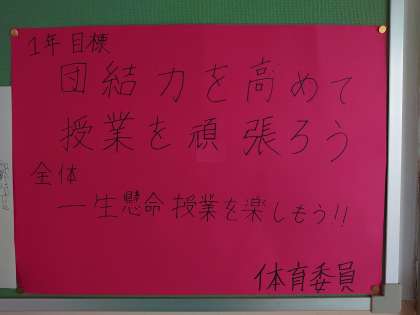 1年目標
団結力を高めて
授業を頑張ろう
全体
一生懸命授業を楽しもう!!
体育委員